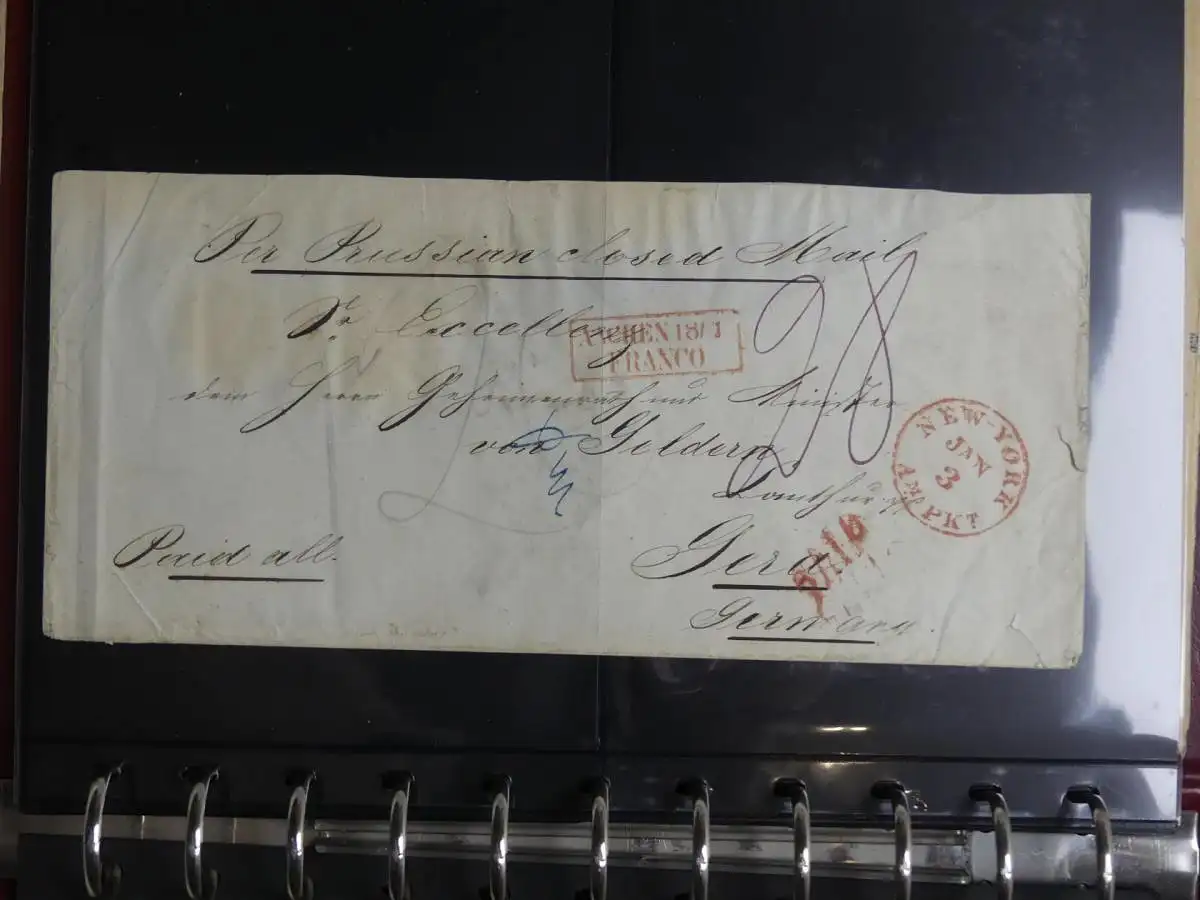 Per Prussian closed Mail
Sr. Excellenz
AACHEN 18/1
FRANCO
dem Herrn Geheimenrath und Minister
von Geldern
NEW-YORK
JAN
3
AM. PKT
Paid all.
Gera.
PAID
Germany.